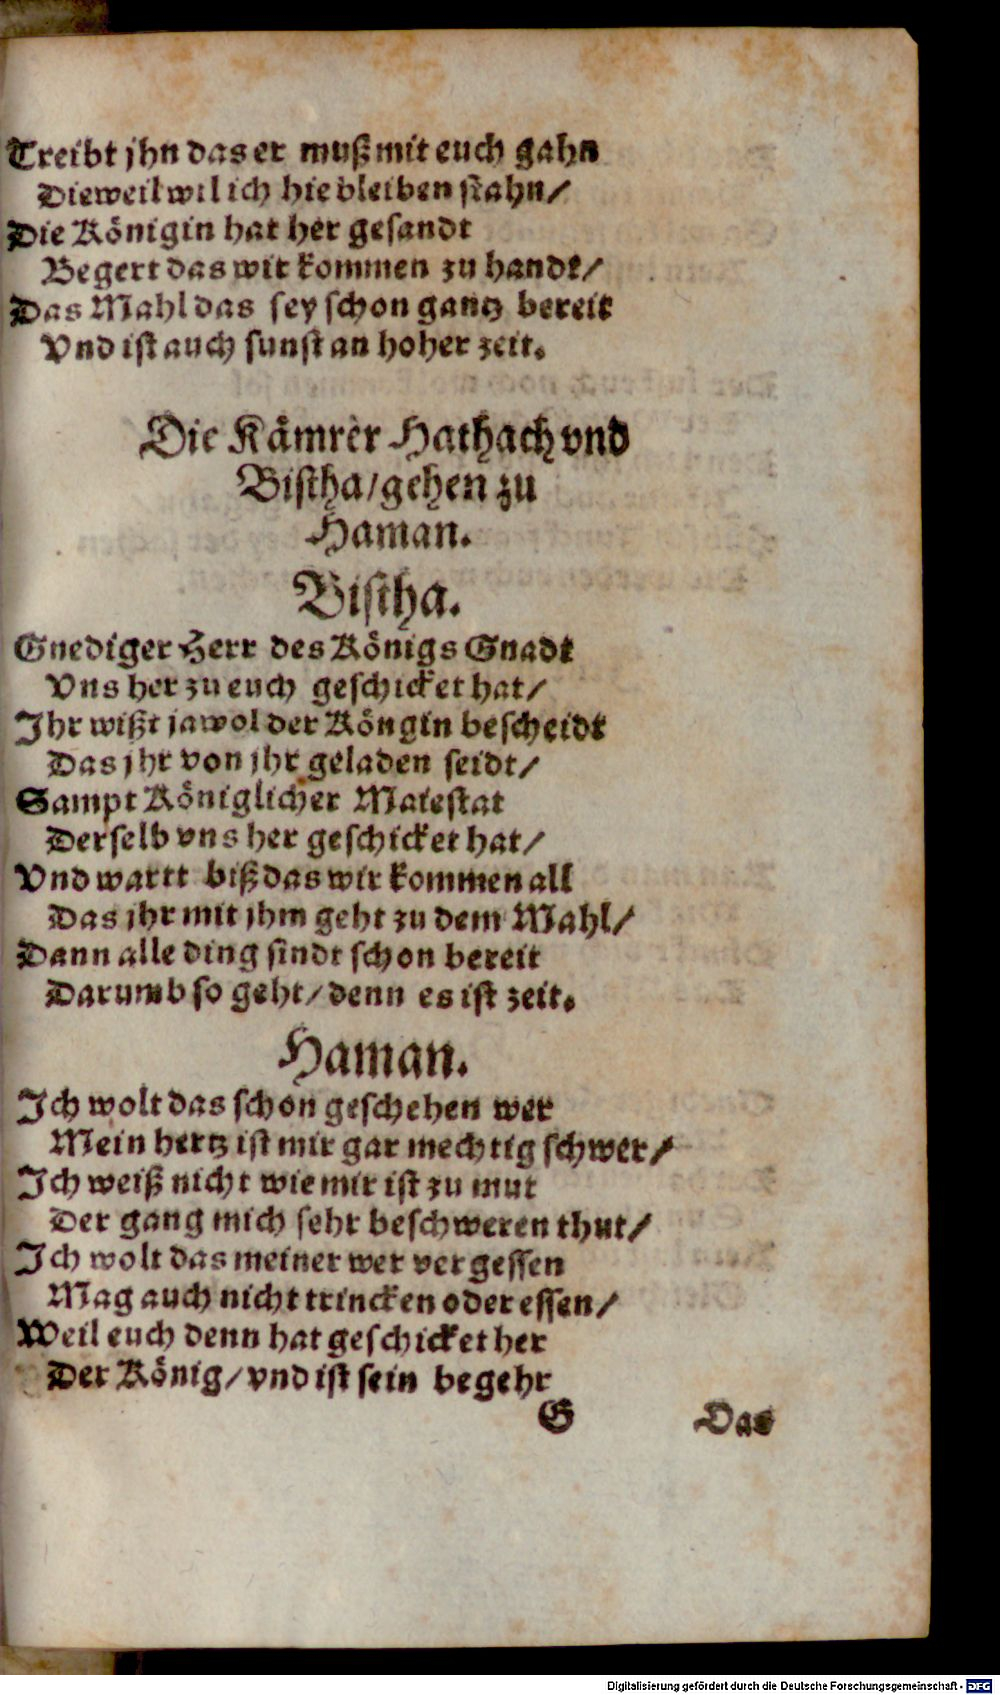 Treibt jhn das er muß mit euch gahn
Dieweil wil ich hie bleiben stahn/
Die Königin hat her gesandt
Begert das wir kommen zu handt/
Das Mahl das sey schon gantz bereit
Vnd ist auch sunst an hoher zeit.
Die Kämrer Hathach vnd
Bistha/gehen zu
Haman.
Bistha.
Gnediger Herr des Königs Gnadt
Vns her zu euch geschicket hat/
Jhr wißt jawol der Köngin bescheidt
Das jhr von jhr geladen seidt/
Sampt Königlicher Maiestat
Derselb vns her geschicket hat/
Vnd wartt biß das wir kommen all
Das jhr mit jhm geht zu dem Mahl/
Dann alle ding sindt schon bereit
Darumb so geht/denn es ist zeit.
Haman.
Jch wolt das schon geschehen wer
Mein hertz ist mir gar mechtig schwer/
Jch weiß nicht wie mir ist zu mut
Der gang mich sehr beschweren thut/
Jch wolt das meiner wer vergessen
Mag auch nicht trincken oder essen/
Weil euch denn hat geschicket her
Der König/vnd ist sein begehr
G Das
Digitalisierung gefördert durch die Deutsche Forschungsgemeinschaft - DFG